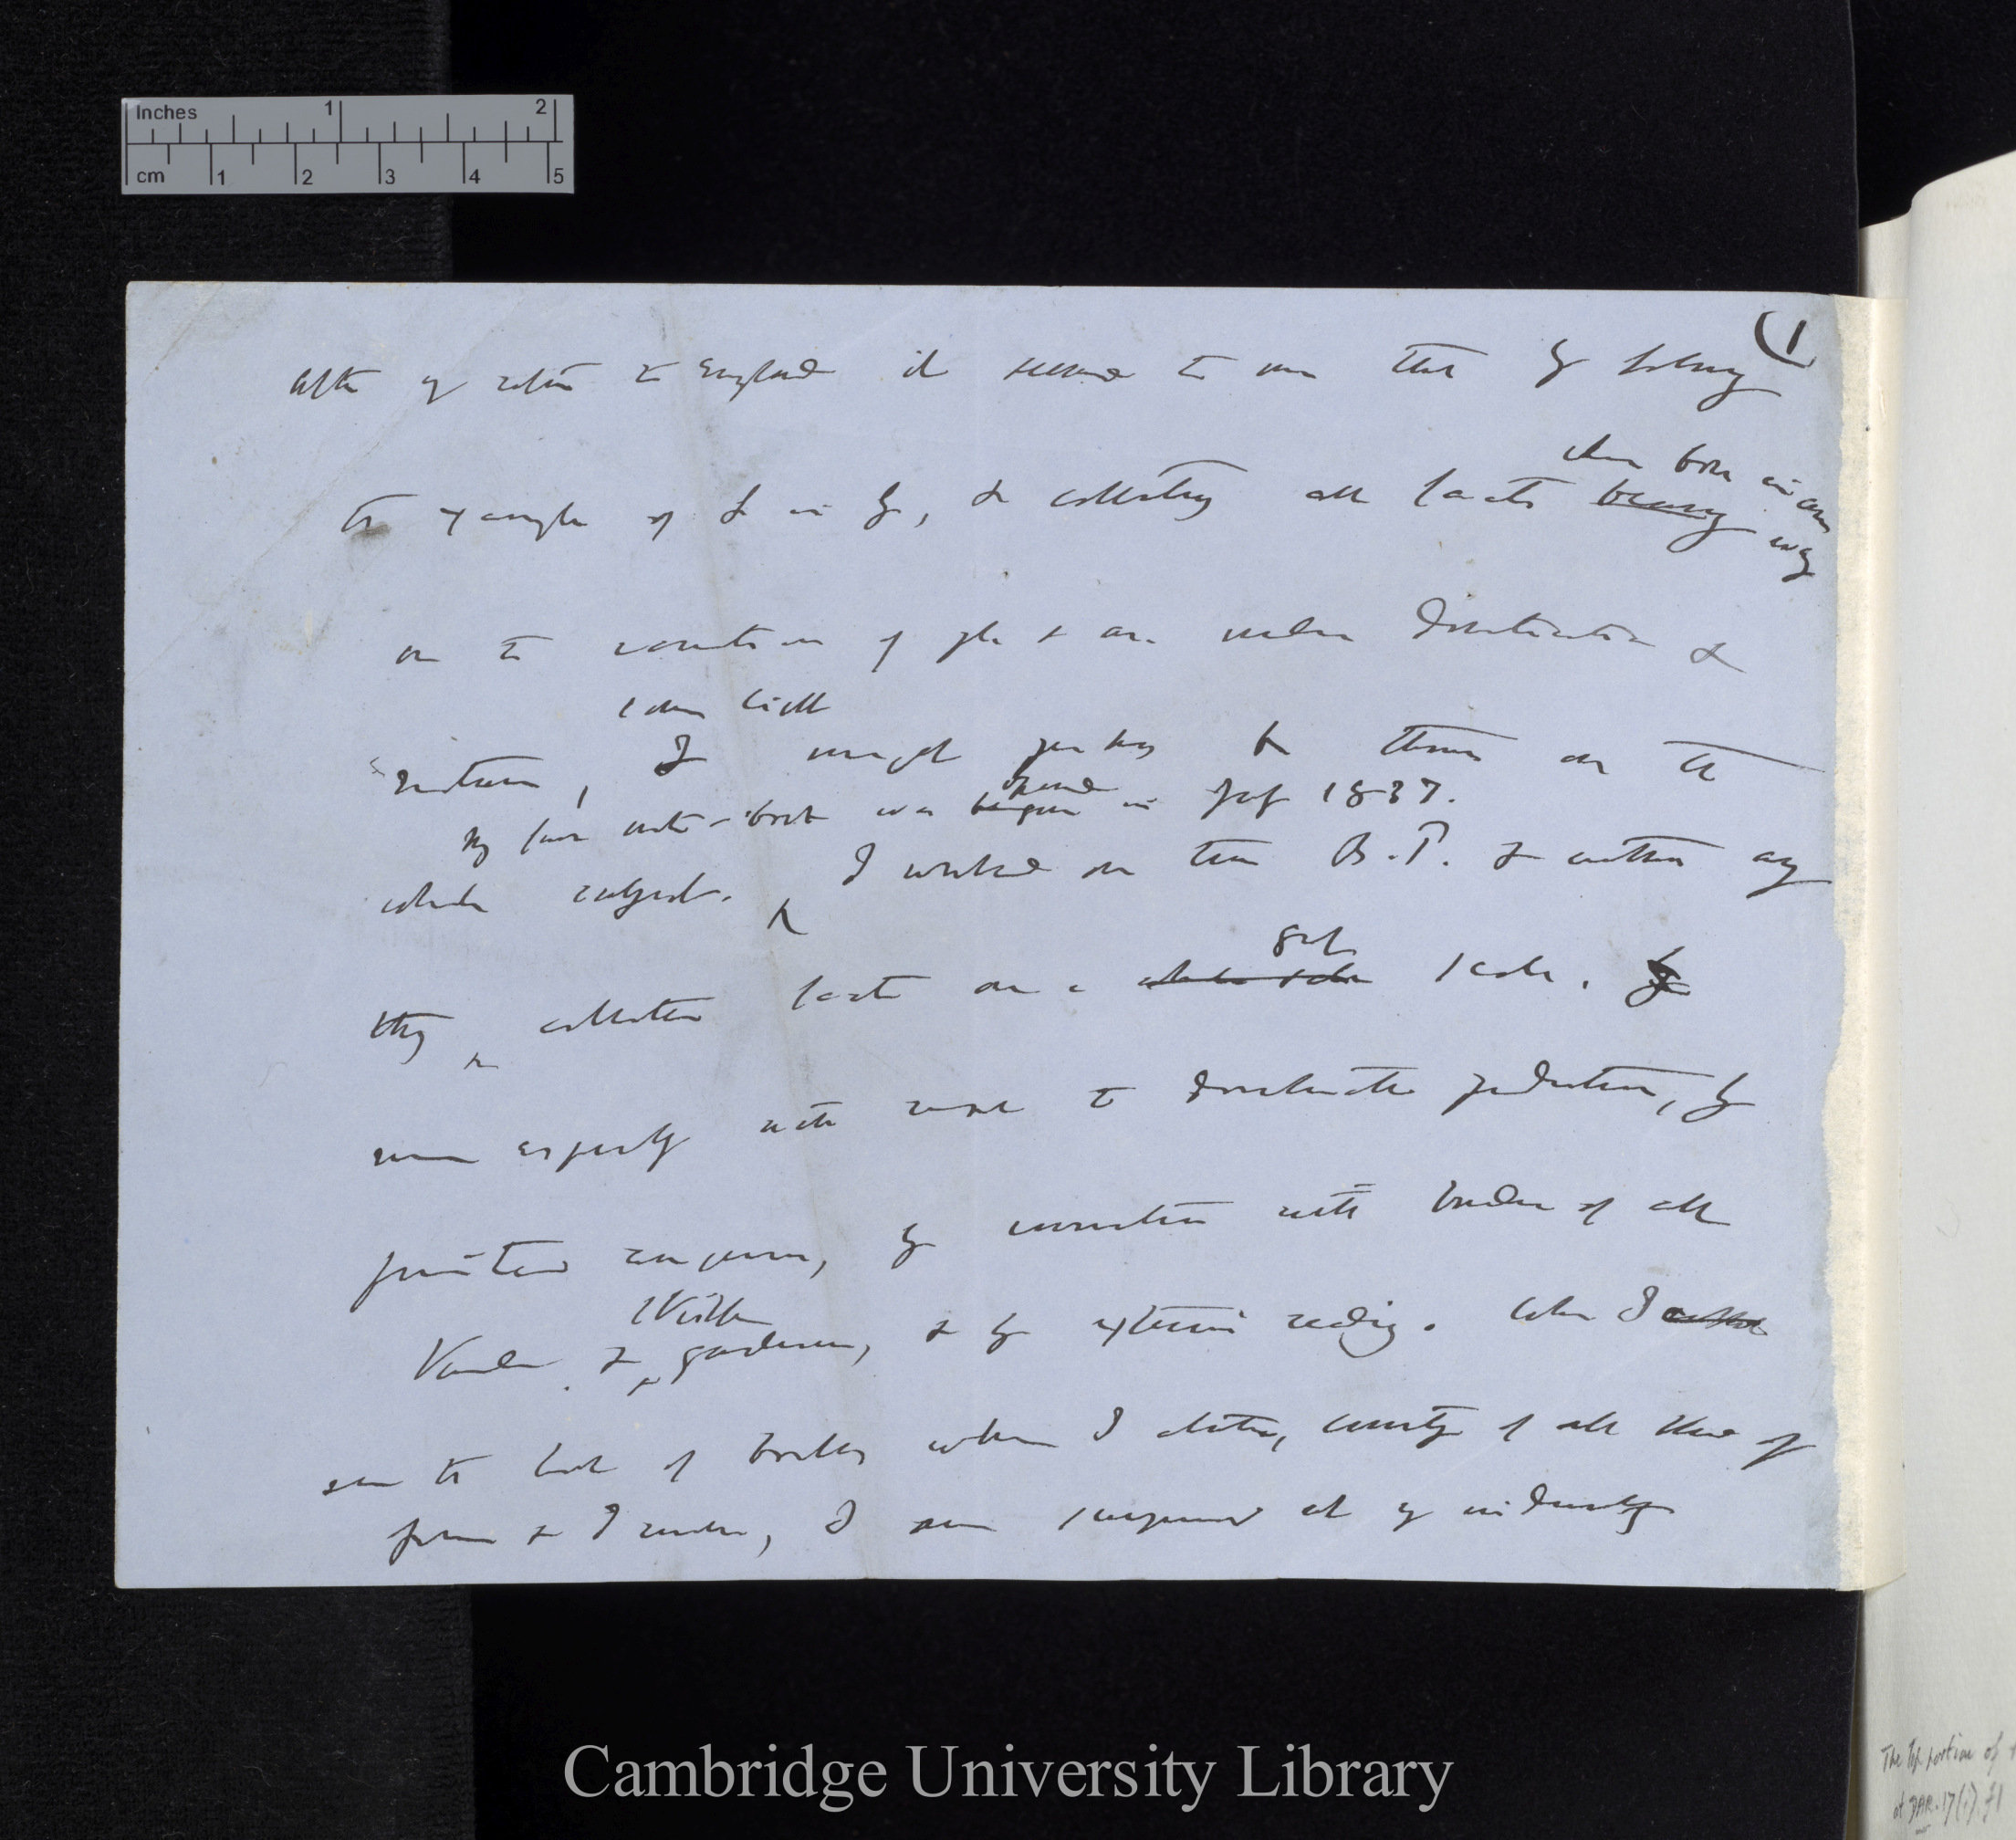 (1
After my return to England it seemed to me that by following
which bore in any way
the example of L in G, & collecting all facts bearing
on the variation of pl. & an. under Domestication &
some light
nature, I might perhaps be thrown on the
My first note-book was began opened in July 1837.
whole subject. I worked on true B.P. & without any
great
thy collected facts on a whole sale scale. By
more especially with respect to domesticated productions, by
printed enquiries, by conversation with breeders of all
skilful
Kinds & gardeners, & by extensive reading. When I
see the list of books which I abstracted, of all kinds of
I am surprised at my industry
Inches 1 2
cm 1 2 3 4 5
Cambridge University Library
The top portion of
at DAR.17(i).f1